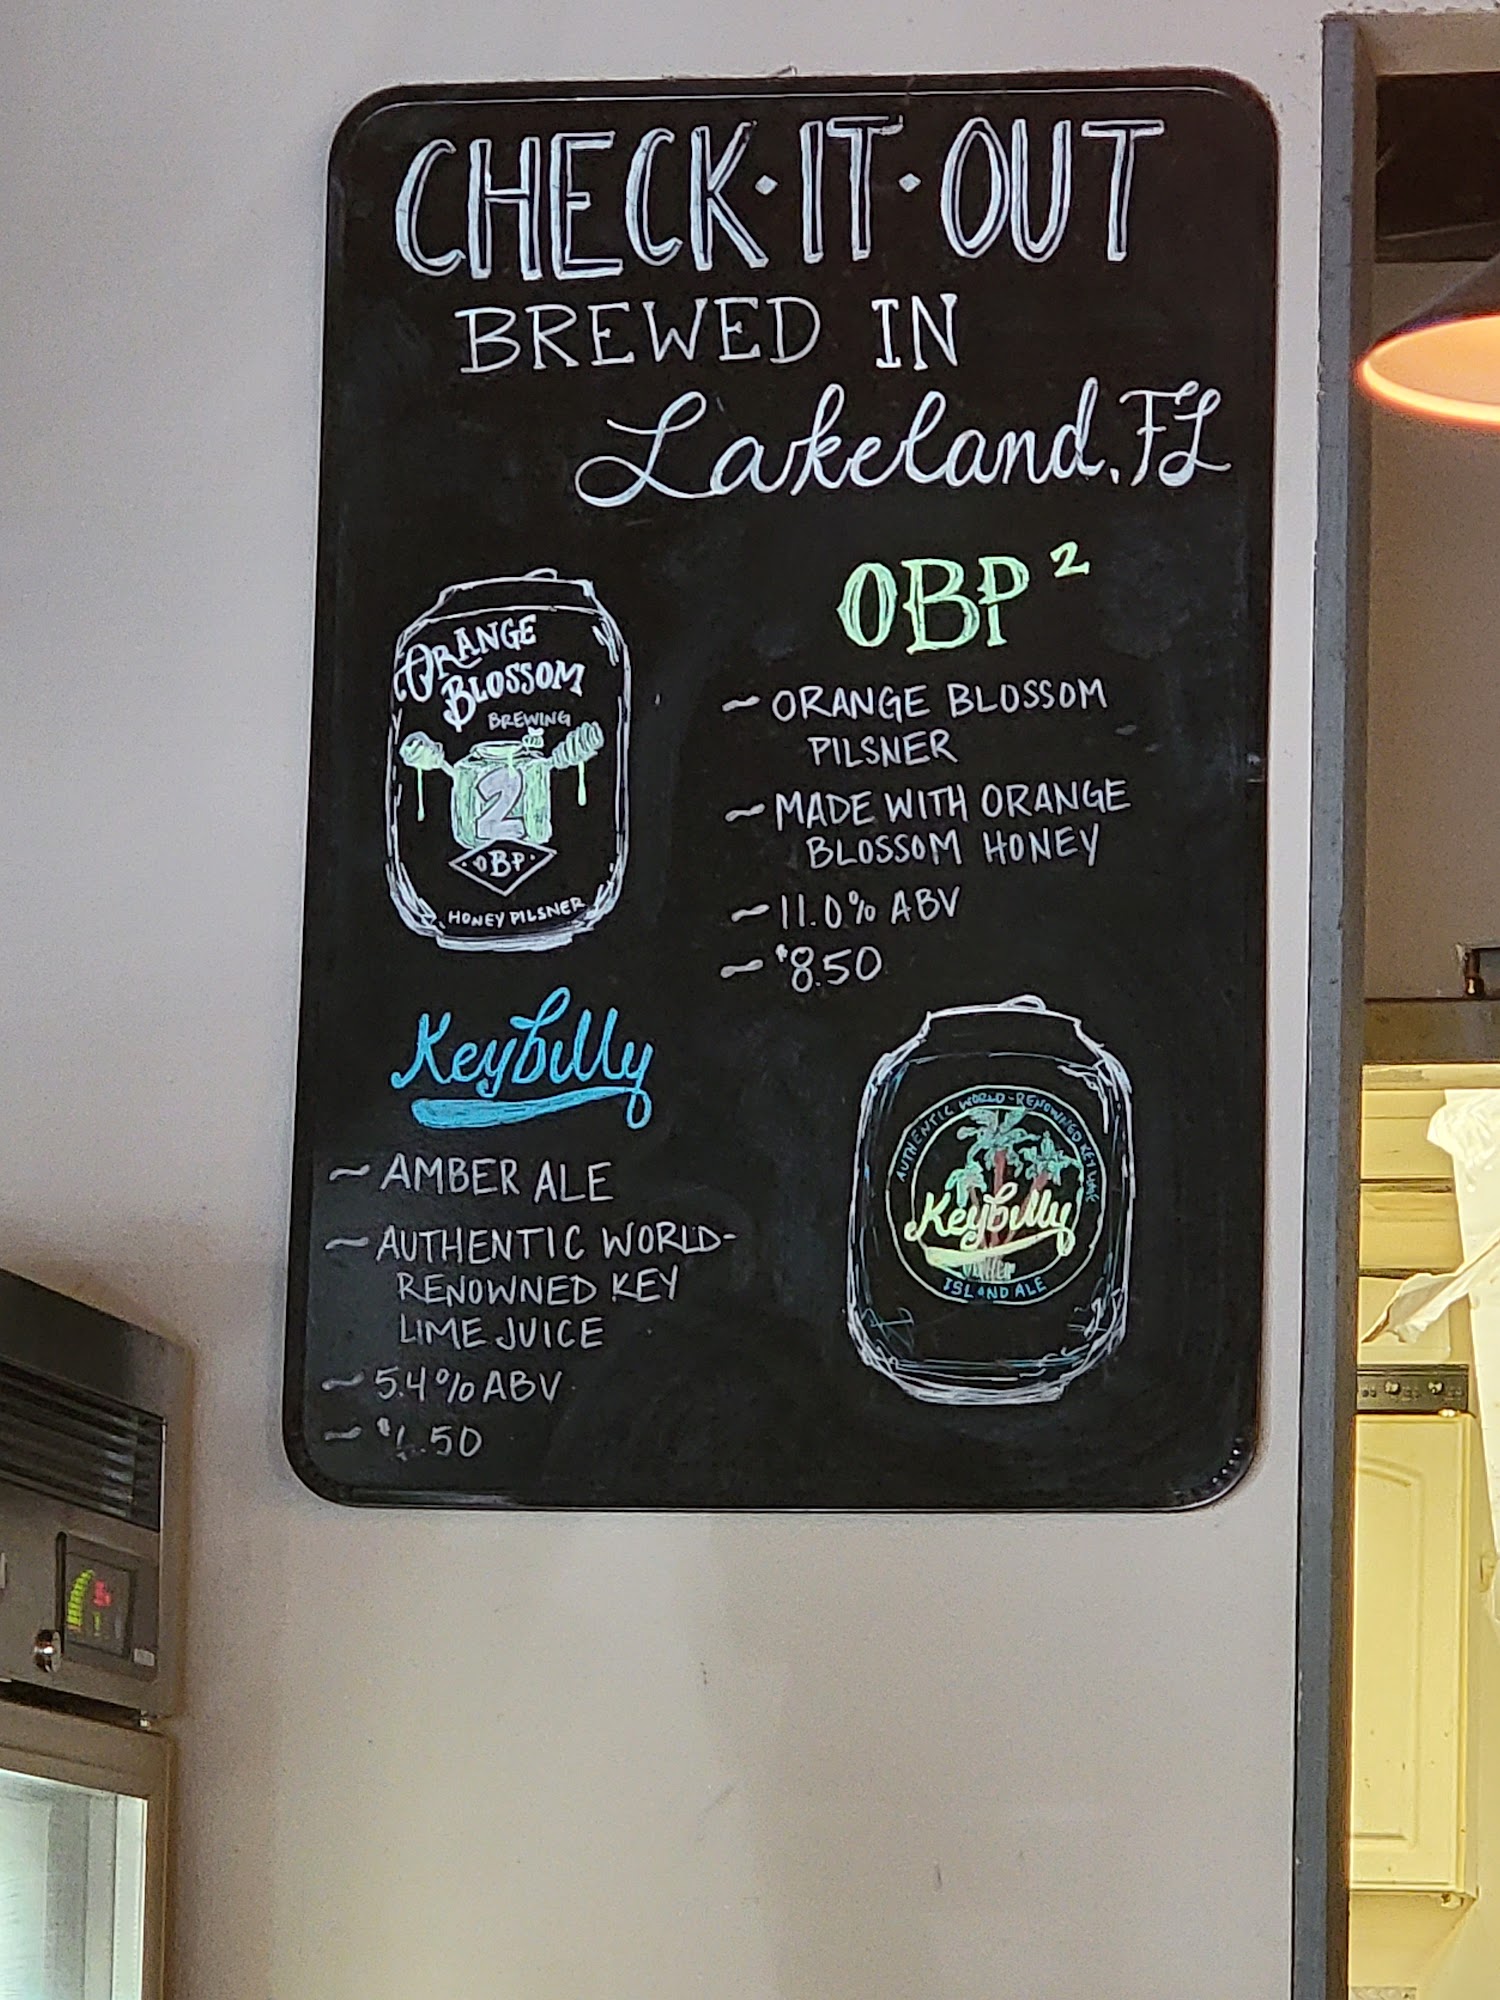 CHECK·IT·OUT
BREWED IN
Lakeland, FL
ORANGE
BLOSSOM
BREWING
2
·OBP·
HONEY PILSNER
OBP²
~ ORANGE BLOSSOM
PILSNER
~ MADE WITH ORANGE
BLOSSOM HONEY
~ 11.0% ABV
~ $8.50
Keybilly
~ AMBER ALE
~ AUTHENTIC WORLD-
RENOWNED KEY
LIME JUICE
~ 5.4% ABV
AUTHENTIC WORLD-RENOWNED KEY
Keybilly
ISLAND ALE